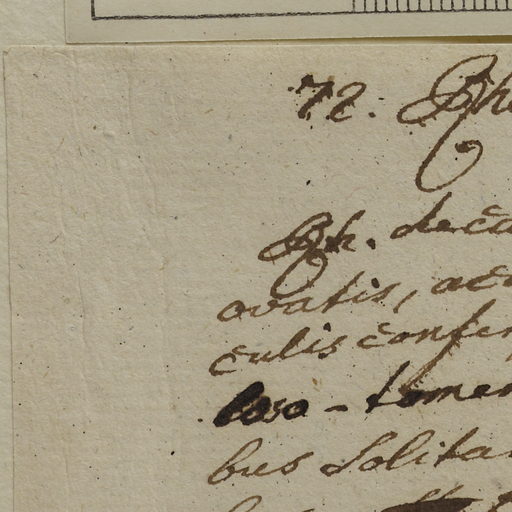 72. Ph
Ph. decu
ovatis, acu
culis confer
loso-tomen
bus Solita